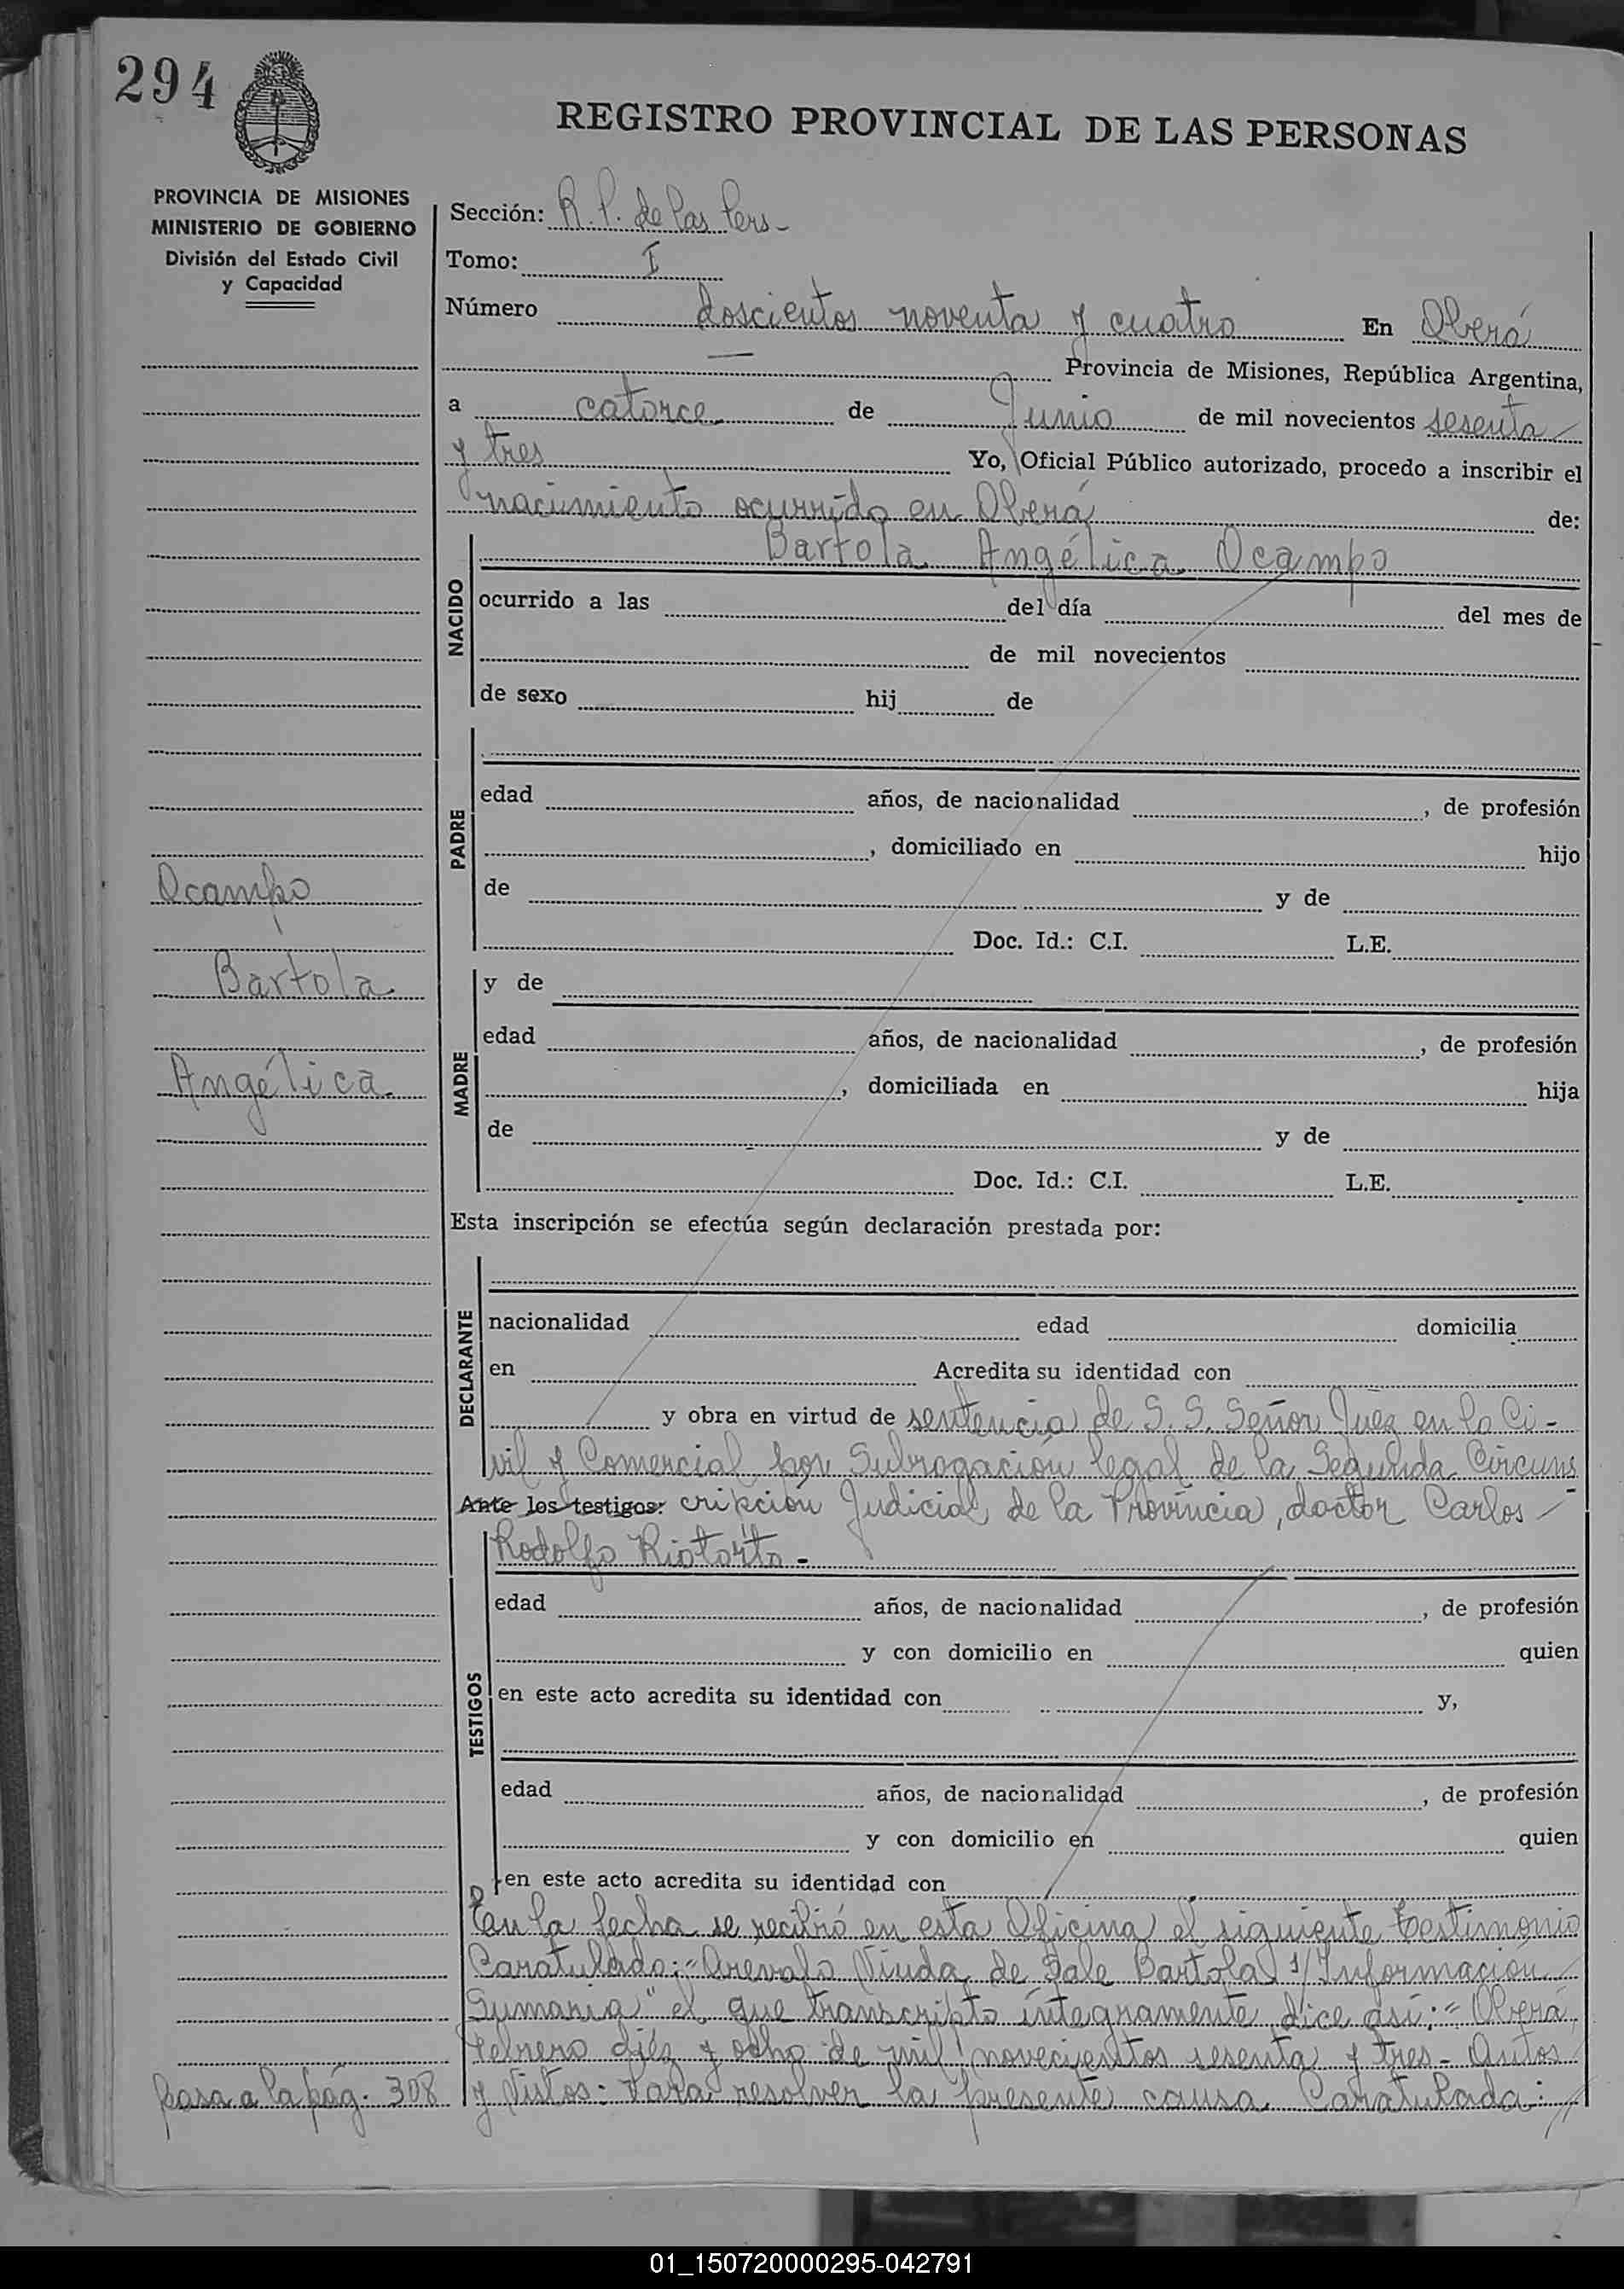 294
REGISTRO PROVINCIAL DE LAS PERSONAS
PROVINCIA DE MISIONES
MINISTERIO DE GOBIERNO
División del Estado Civil
y Capacidad
Sección: R. P. de las Pers-
Tomo: I
Número doscientos noventa y cuatro En Oberá
Provincia de Misiones, República Argentina,
a catorce de Junio de mil novecientos sesenta
y tres Yo, Oficial Público autorizado, procedo a inscribir el
nacimiento ocurrido en Oberá de:
NACIDO
Bartola Angélica Ocampo
ocurrido a las del día del mes de
de mil novecientos
de sexo hij de
PADRE
edad años, de nacionalidad , de profesión
, domiciliado en hijo
de y de
Doc. Id.: C.I. L.E.
Ocampo
Bartola
Angélica
MADRE
y de
edad años, de nacionalidad , de profesión
, domiciliada en hija
de y de
Doc. Id.: C.I. L.E.
Esta inscripción se efectúa según declaración prestada por:
DECLARANTE
nacionalidad edad domicilia
en Acredita su identidad con
y obra en virtud de sentencia de S. S. Señor Juez en lo Ci-
vil y Comercial por Subrogación legal de la Segunda Circuns
Ante los testigos: cripción Judicial de la Provincia, doctor Carlos -
Rodolfo Riotorto -
TESTIGOS
edad años, de nacionalidad , de profesión
y con domicilio en quien
en este acto acredita su identidad con y,
edad años, de nacionalidad , de profesión
y con domicilio en quien
en este acto acredita su identidad con
En la fecha se recibió en esta Oficina el siguiente testimonio
Caratulado:="Arévalo Viuda de Bartola s/Información
Sumaria" el que transcripto íntegramente dice así:= Oberá,
Febrero diéz y ocho de mil novecientos sesenta y tres - Autos
y Vistos: Para resolver la presente causa Caratulada:
pasa a la pág. 308
01_150720000295-042791